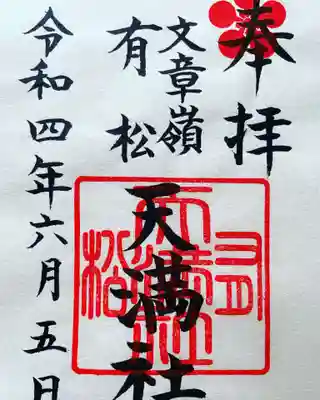 奉拝
文章嶺
有松天満社
令和四年六月五日